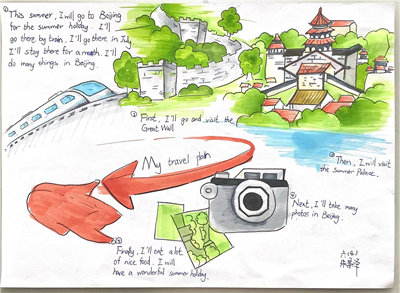 This summer, I will go to Beijing
for the summer holiday. I'll
go there by train, I'll go there in July.
I'll stay there for a month. I'll
do many things in Beijing.
First, I'll go and visit the
Great Wall
Then, I will visit
the Summer Palace.
My travel plan
Next, I'll take many
photos in Beijing.
Finally, I'll eat a lot
of nice food. I will
have a wonderful summer holiday.